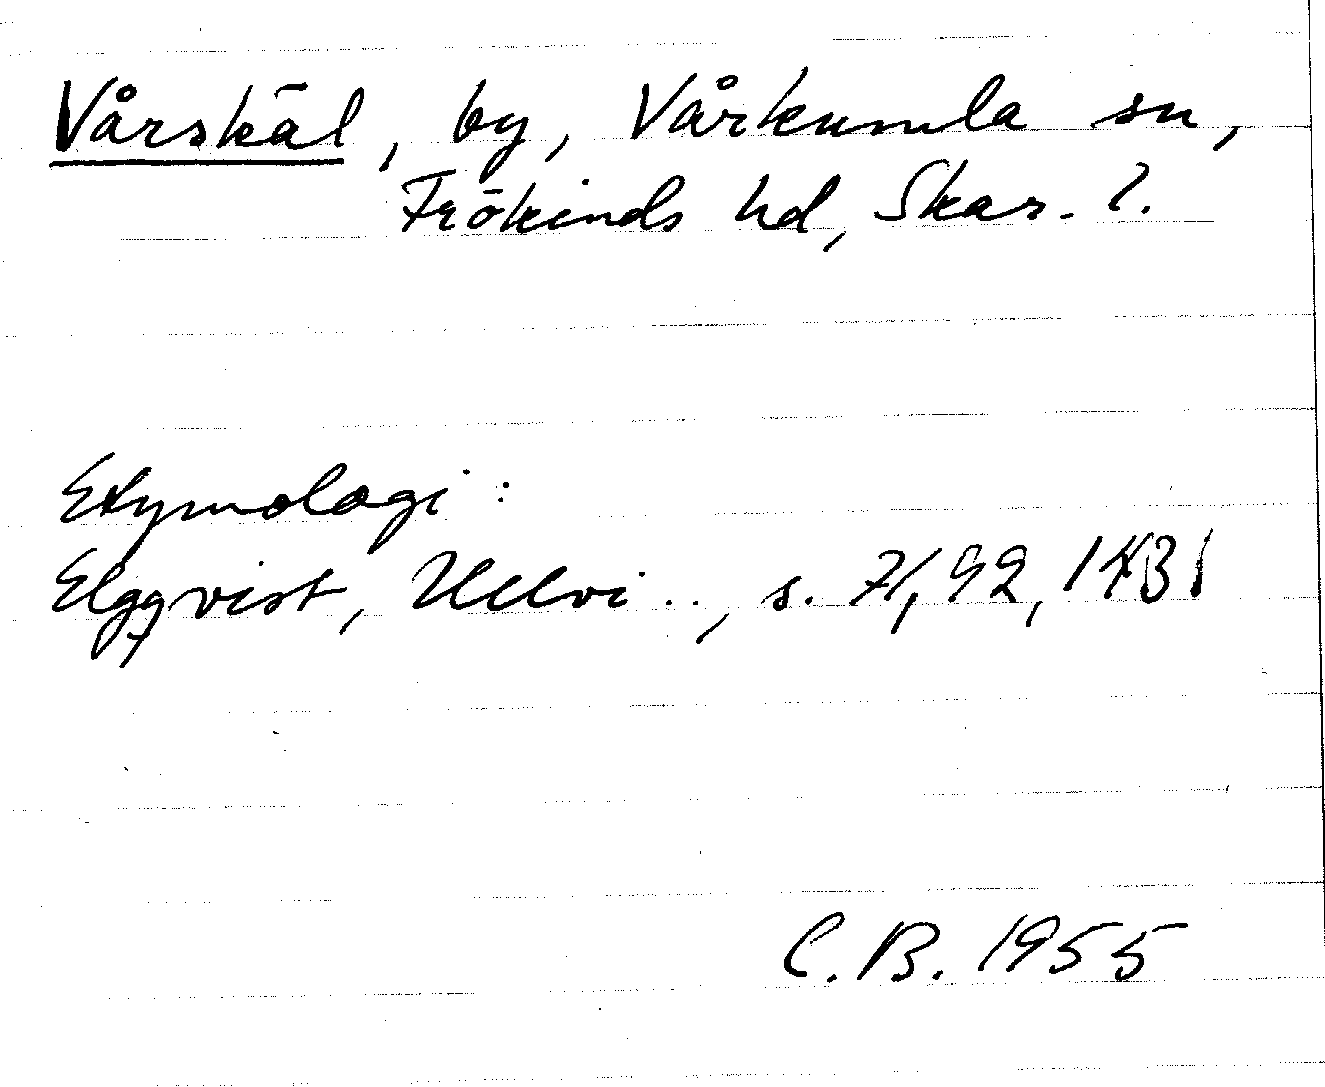 Vårskäl, by, Vårkumla sn,
Frökinds hd, Skar. l.
Etymologi:
Elgqvist, Ullvi.., s. 71, 92,
C.B. 1955